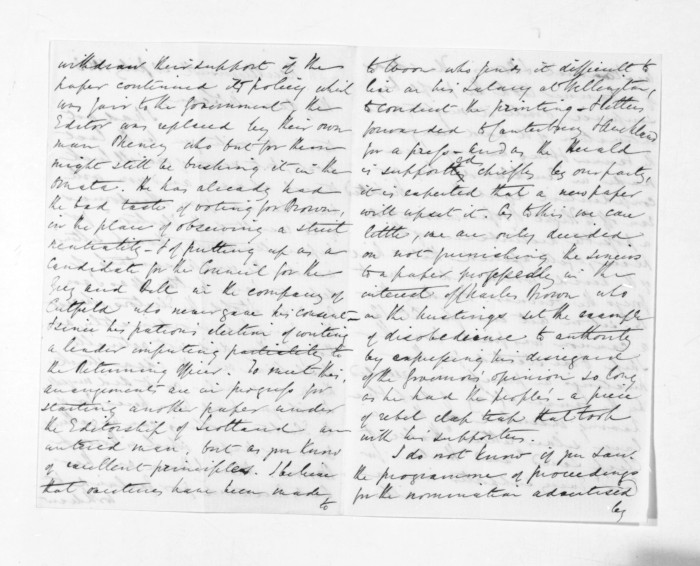 withdrawn their support if the
paper continued its policy which
was fair to the Government, the
Editor was replaced by their own
man Pheney who but for them
might still be bushing it in the
Omata. He has already had
the bad taste of voting for Brown,
in the place of observing a strict
neutrality - & of putting up as a
Candidate for the Council for the
Grey and Bell in the company of
Cutfield who never gave his consent -
& since his patron's election of writing
a leader imputing partiality to
the Returning Officer. To meet this,
arrangements are in progress for
starting another paper under
the Editorship of Scotland an
untried man, but as you know
of excellent principles. I believe
that overtures have been made
to
to Woon who finds it difficult to
live on his salary at Wellington,
to conduct the printing - & letters
forwarded to Canterbury & Auckland
for a press - and as the Herald
is supported chiefly by our party,
it is expected that a newspaper
will upset it. As to this we care
little, we are only decided
on not furnishing the sinews
to a paper professedly in the
interest of Charles Brown who
on the hustings set the example
of disobedience to authority
by expressing his disregard
of the Governor's opinion so long
as he had the peoples - a piece
of rebel clap trap that took
with his supporters.
I do not know if you saw
the programme of proceedings
for the nomination advertised
by